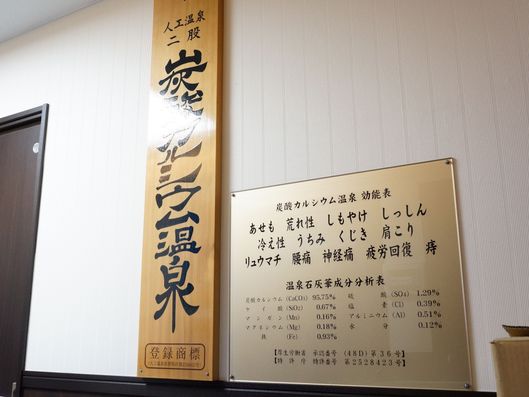 人工温泉
二股
炭酸カルシウム温泉
登録商標
炭酸カルシウム温泉 効能表
あせも 荒れ性 しもやけ しっしん
冷え性 うちみ くじき 肩こり
リュウマチ 腰痛 神経痛 疲労回復 痔
温泉石灰華成分分析表
炭酸カルシウム (CaCO3) 95.75% 硫酸 (SO4) 1.29%
ケイ酸 (SiO2) 0.67% 塩素 (Cl) 0.39%
マンガン (Mn) 0.16% アルミニウム (Al) 0.51%
マグネシウム (Mg) 0.18% 水分 0.12%
鉄 (Fe) 0.93%
【厚生労働省 承認番号 (48D)第36号】
【特許庁 特許番号 第2528423号】